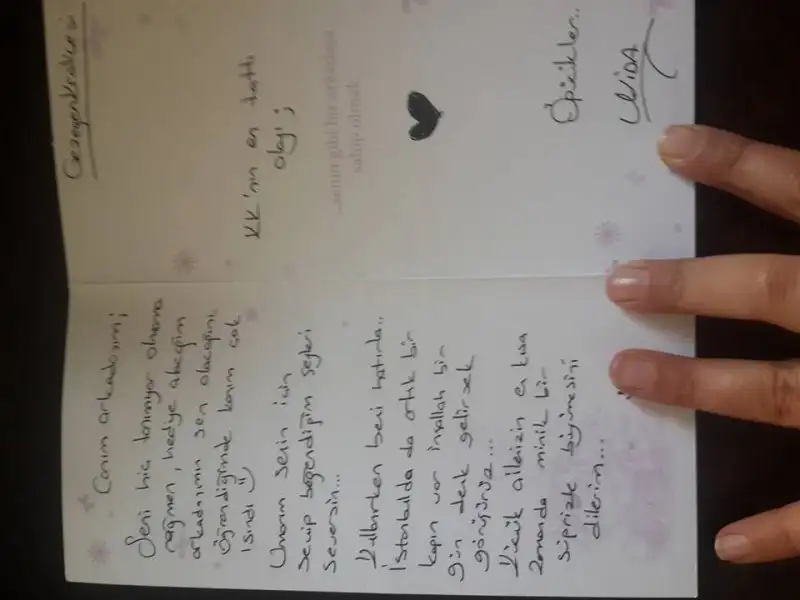 Canım arkadaşım;
Seni hiç tanımıyor olmama
rağmen, hediye alacağım
arkadaşımın sen olacağını
öğrendiğimde kanım çok
ısındı
Umarım senin için
seçip beğendiğim şeyleri
seversin...
Kullanırken beni hatırla..
İstanbulda da artık bir
kapın var inşallah bir
gün denk gelirsek
görüşürüz...
Küçük ailenizin en kısa
zamanda minik bir
süprizle büyümesini
dilerim...
GezegenKraliçesi
KK'nın en tatlı
olayı;
senin gibi bir arkadaşa
sahip olmak
Öpücükler..